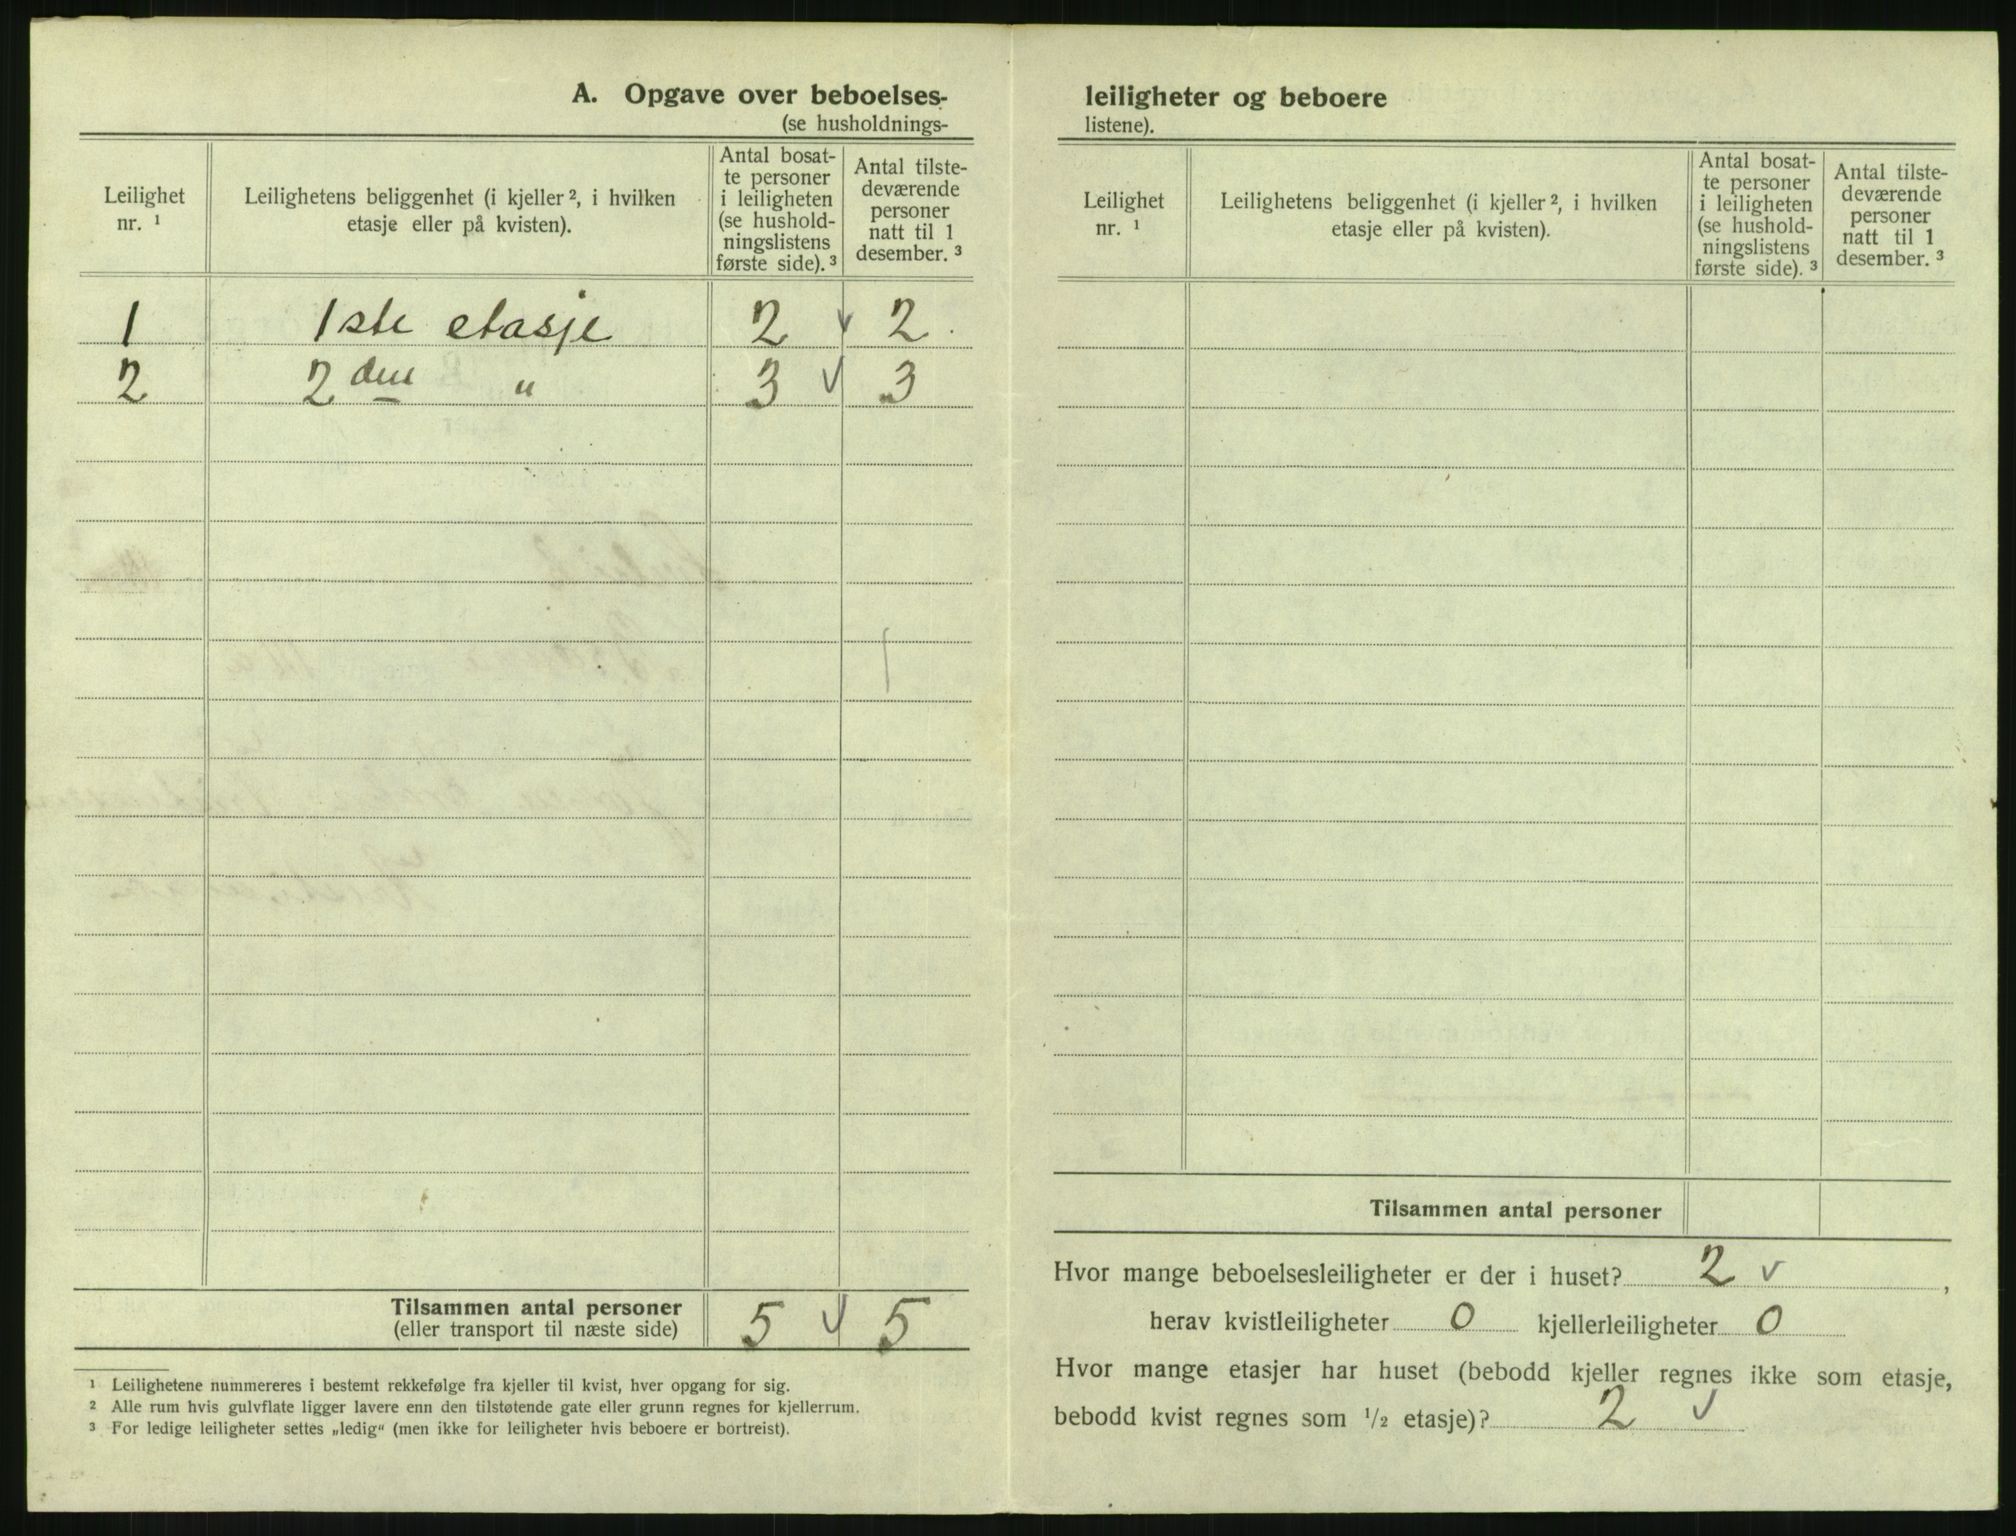 A. Opgave over beboelses-
(se husholdnings-
Leilighet
nr. ¹
Leilighetens beliggenhet (i kjeller ², i hvilken
etasje eller på kvisten).
Antal bosat-
te personer
i leiligheten
(se hushold-
ningslistens
første side). ³
Antal tilste-
deværende
personer
natt til 1
desember. ³
1 1ste etasje 2 v 2
2 2den " 3 v 3
Tilsammen antal personer
(eller transport til næste side) 5 v 5
¹ Leilighetene nummereres i bestemt rekkefølge fra kjeller til kvist, hver opgang for sig.
² Alle rum hvis gulvflate ligger lavere enn den tilstøtende gate eller grunn regnes for kjellerrum.
³ For ledige leiligheter settes „ledig“ (men ikke for leiligheter hvis beboere er bortreist).
leiligheter og beboere
listene).
Leilighet
nr. ¹
Leilighetens beliggenhet (i kjeller ², i hvilken
etasje eller på kvisten).
Antal bosat-
te personer
i leiligheten
(se hushold-
ningslistens
første side). ³
Antal tilste-
deværende
personer
natt til 1
desember. ³
Tilsammen antal personer
Hvor mange beboelsesleiligheter er der i huset? 2 v ,
herav kvistleiligheter 0 kjellerleiligheter 0
Hvor mange etasjer har huset (bebodd kjeller regnes ikke som etasje,
bebodd kvist regnes som ½ etasje)? 2 v